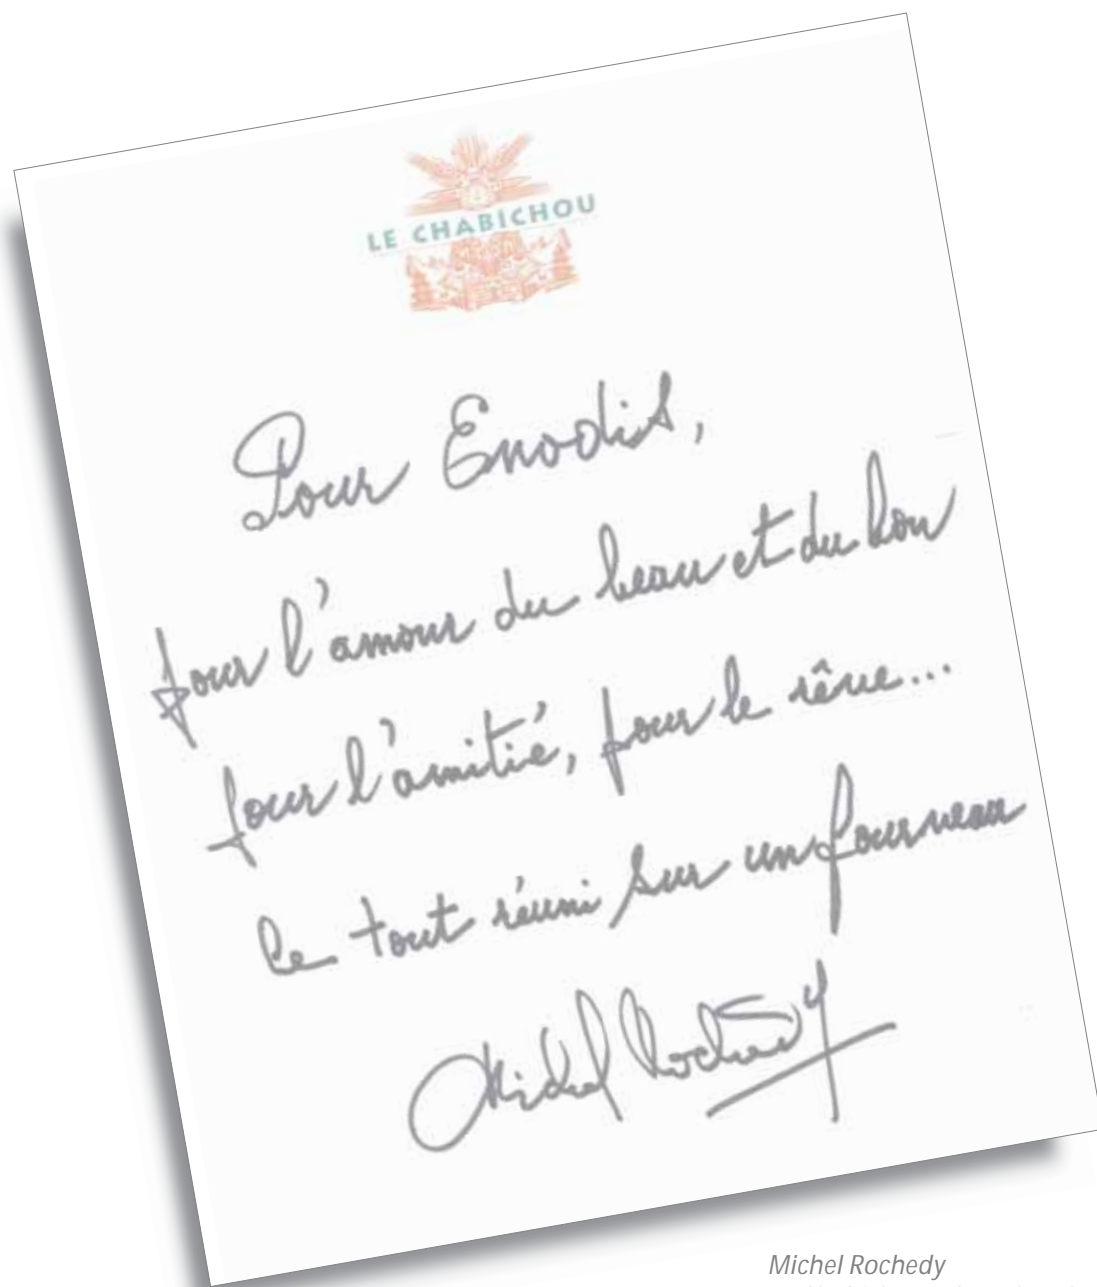 LE CHABICHOU
Pour Enodis,
pour l'amour du beau et du bon
pour l'amitié, pour le rêve...
le tout réuni sur un fourneau
Michel Rochedy
Michel Rochedy